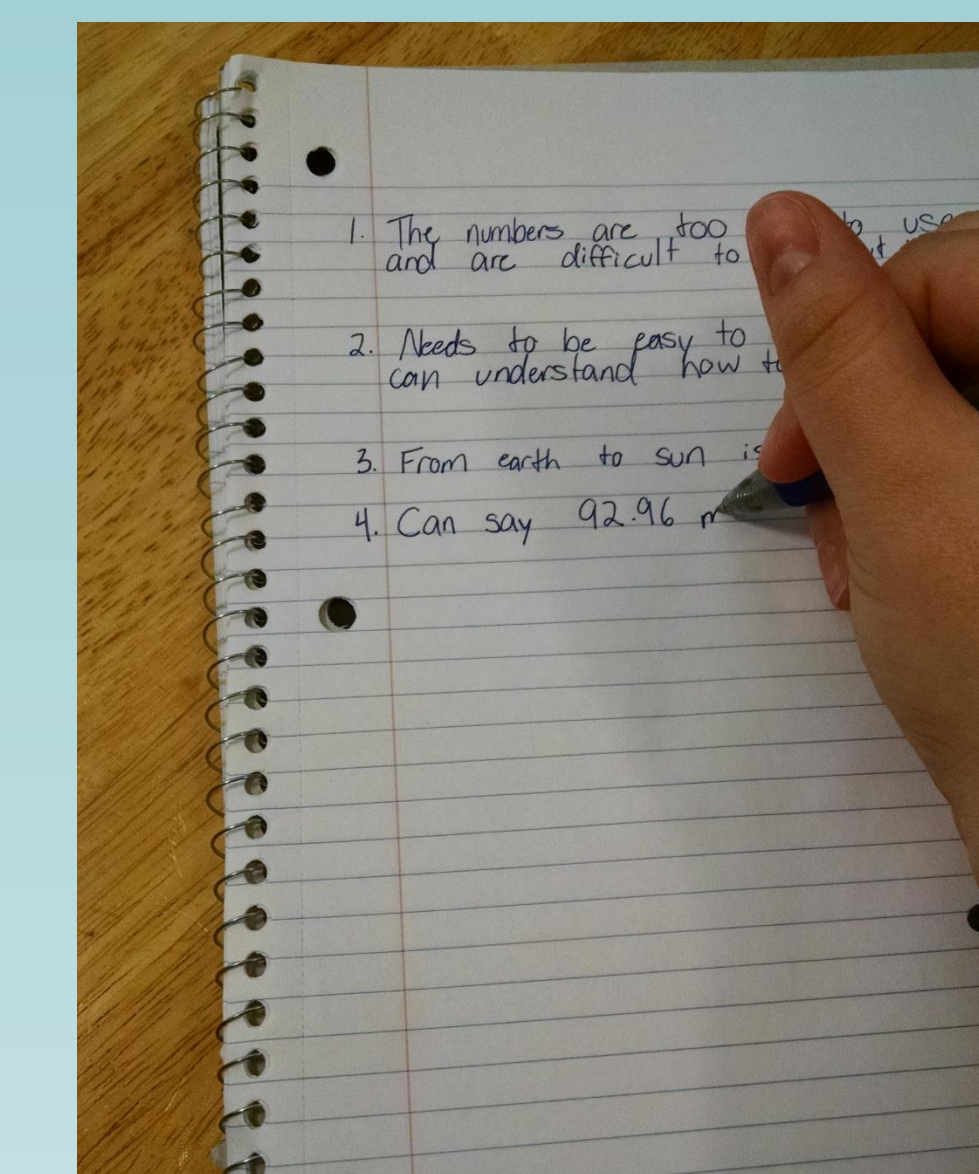 1. The numbers are too to use
and are difficult to
2. Needs to be easy to
can understand how
3. From earth to sun is
4. Can say 92.96